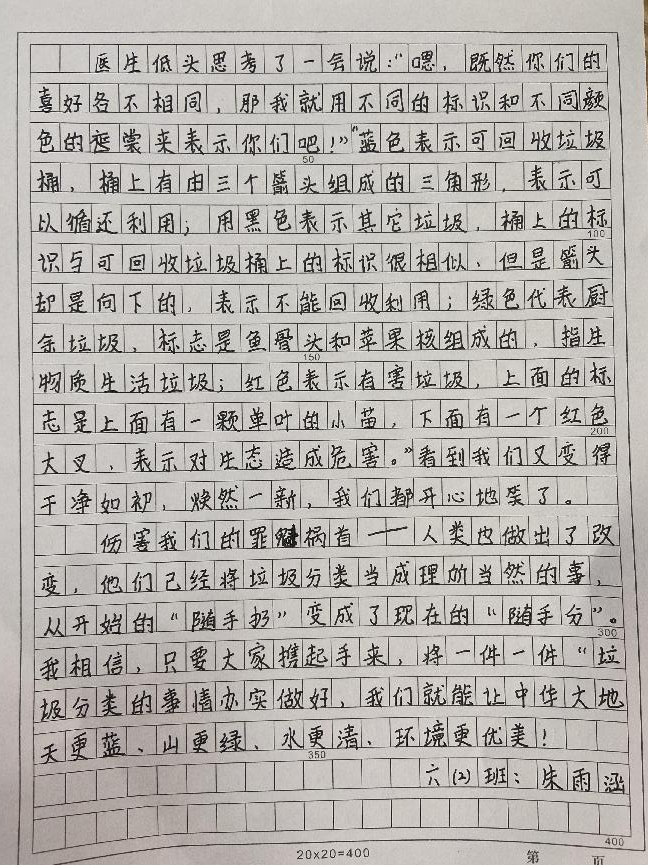 医生低头思考了一会说：“嗯，既然你们的
喜好各不相同，那我就用不同的标识和不同颜
色的裳来表示你们吧！”“蓝色表示可回收垃圾
50
桶，桶上有由三个箭头组成的三角形，表示可
以循还利用；用黑色表示其它垃圾，桶上的标
100
识与可回收垃圾桶上的标识很相似、但是箭头
却是向下的，表示不能回收利用；绿色代表厨
余垃圾，标志是鱼骨头和苹果核组成的，指生
150
物质生活垃圾；红色表示有害垃圾，上面的标
志是上面有一颗单叶的小苗，下面有一个红色
200
大叉，表示对生态造成危害。”看到我们又变得
干净如初，焕然一新，我们都开心地笑了。
伤害我们的罪祸首——人类也做出了改
变，他们已经将垃圾分类当成理所当然的事，
从开始的“随手扔”变成了现在的“随手分”。
300
我相信，只要大家携起手来，将一件一件“垃
圾分类的事情办实做好，我们就能让中华大地
天更蓝、山更绿、水更清、环境更优美！
350
六（2）班：朱雨涵
400
20×20=400
第 页